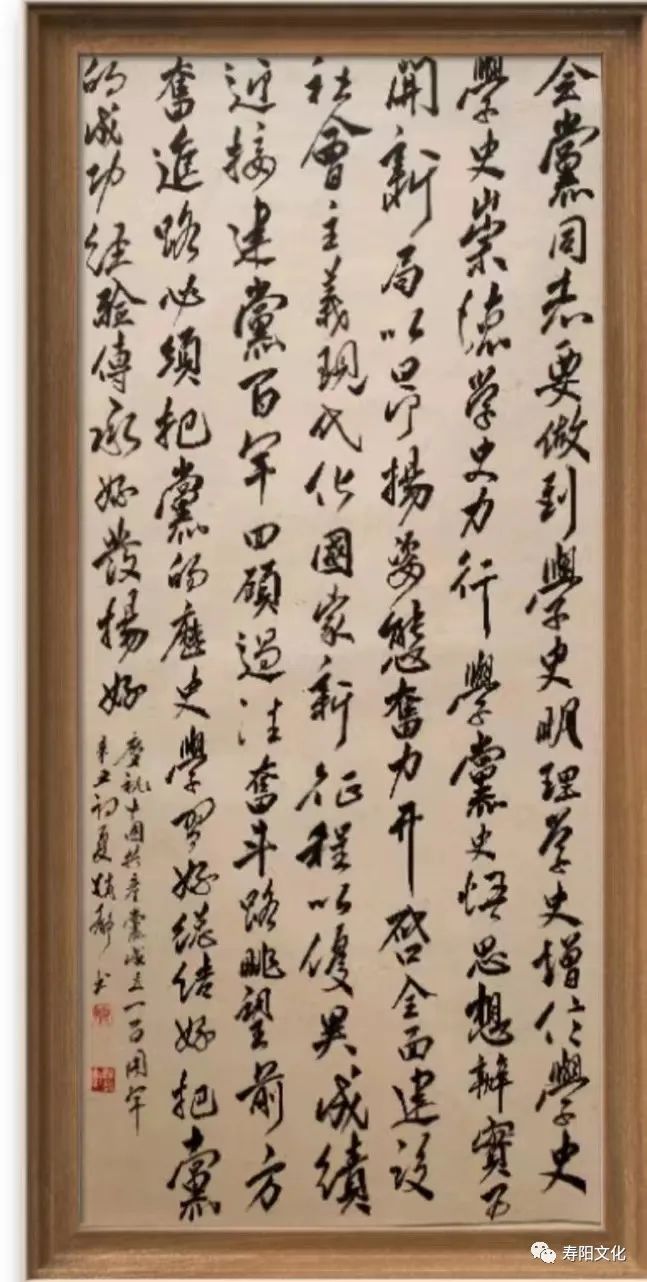 全黨同志要做到學史明理学史增信學史
學史崇德学史力行學黨史悟思想辦實事
開新局以昂揚姿態奮力开启全面建設
社會主義現代化國家新征程以優異成績
迎接建黨百年回顾過往奮斗路眺望前方
奮進路必須把黨的歷史學習好總结好把黨
的成功经验傳承好發揚好
慶祝中國共产黨成立一百周年
辛丑初夏
书
寿阳文化